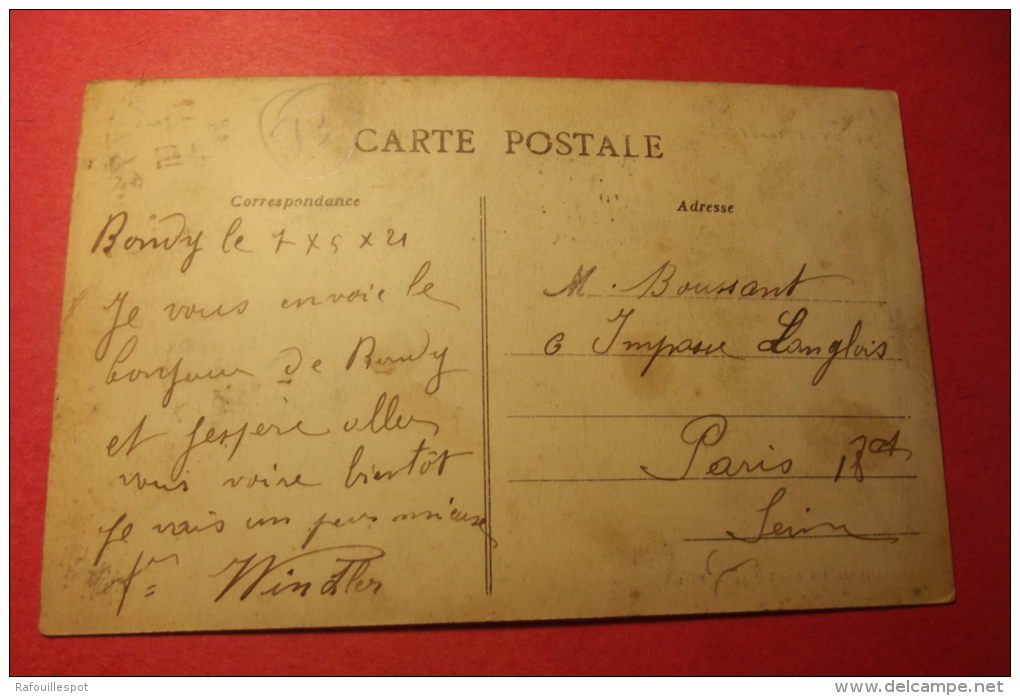 CARTE POSTALE
Correspondance
Bondy le 7 x 5 x 21
Je vous envoie le
bonjour de Bondy
et jespère aller
vous voire bientôt
Je vais un peu mieux
Windler
Adresse
M. Boussant
6 Impasse Langlois
Paris 18
Seine
Rafouillespot
delcampe.net